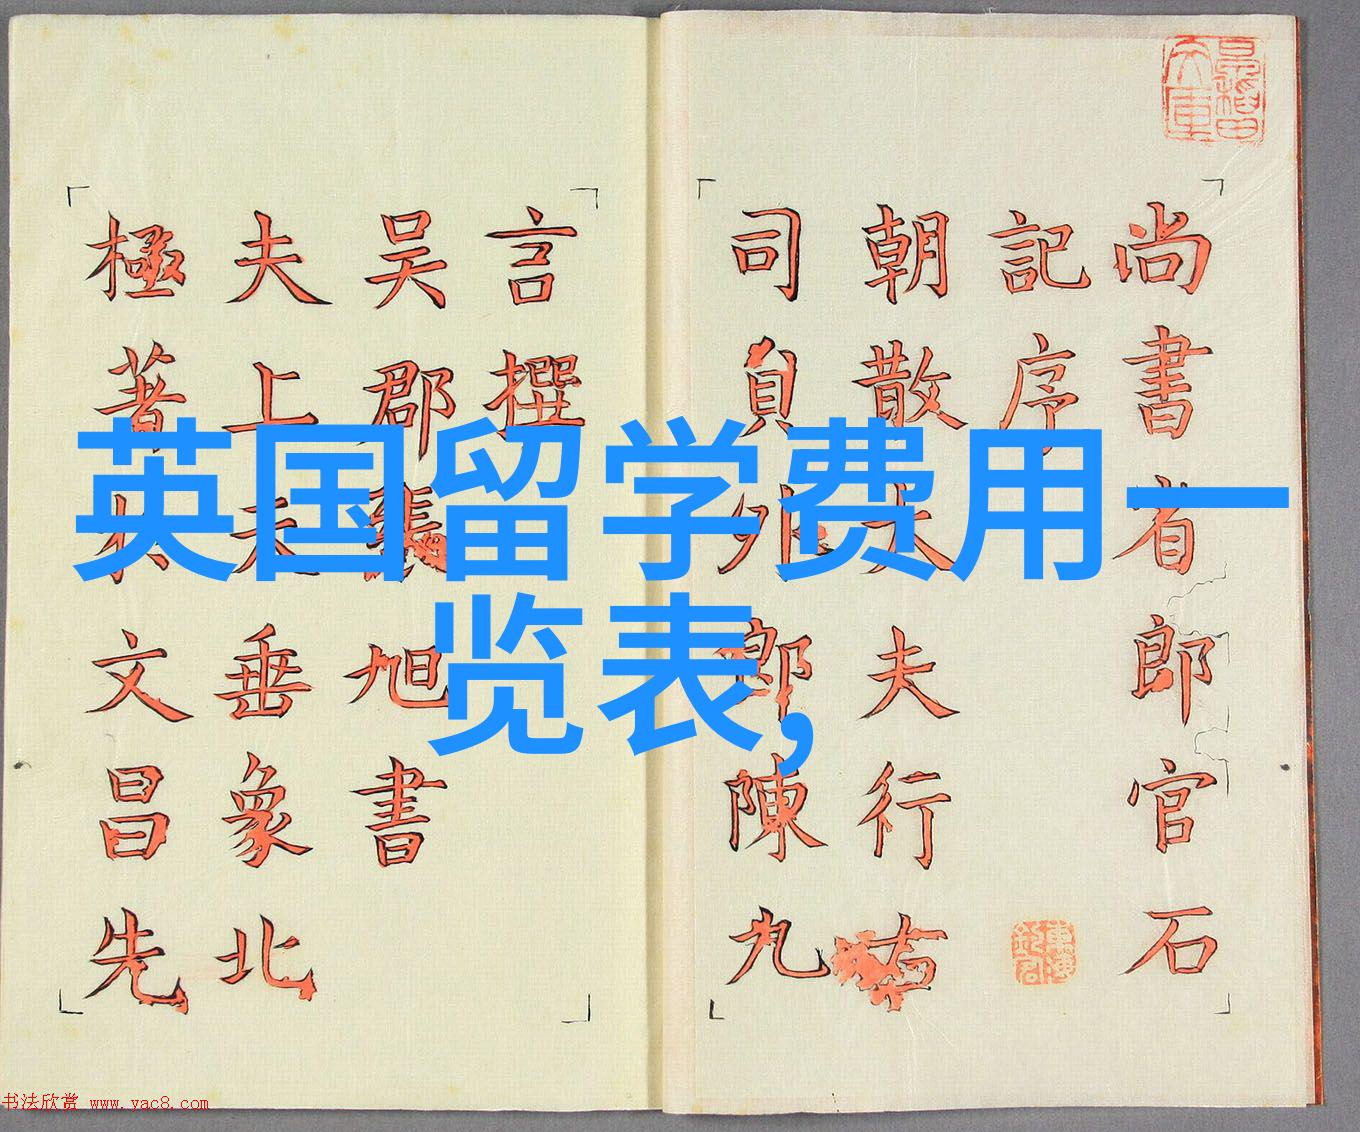 英国留学费用一
览表,
尚書省郎官石
記序
朝散大夫行右
司員外郎陳九
言撰
吴郡張旭書
夫上天垂象北
極著於文昌先
书法欣赏 www.yac8.com